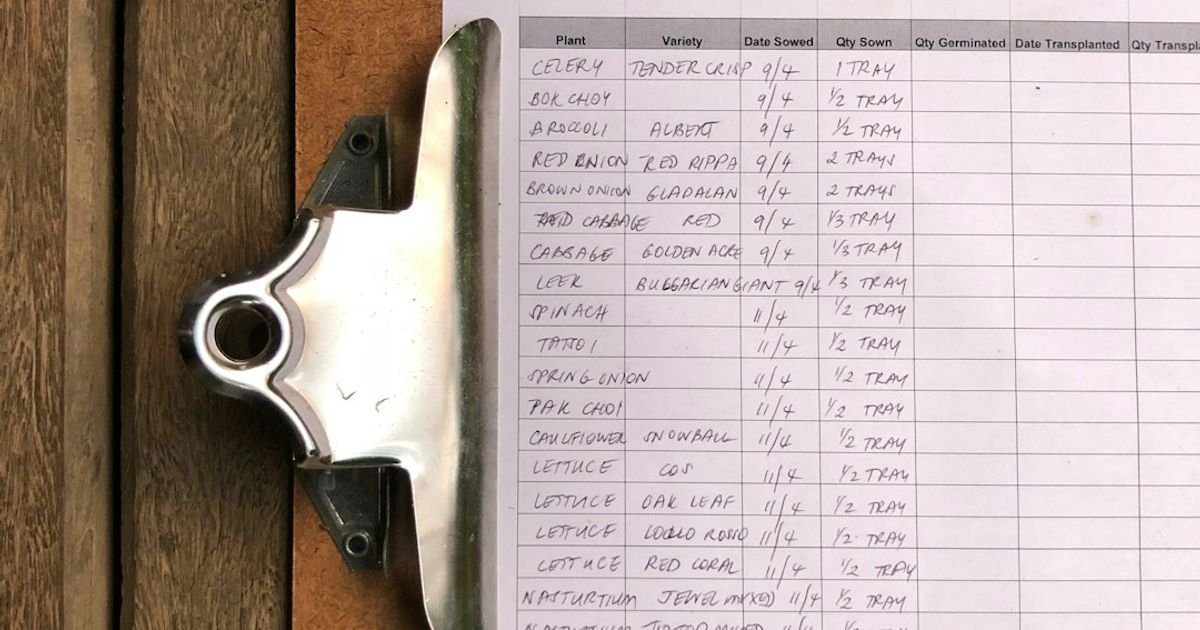 Plant Variety Date Sowed Qty Sown Qty Germinated Date Transplanted Qty Transpla
CELERY TENDER CRISP 9/4 1 TRAY
BOK CHOY 9/4 1/2 TRAY
BROCCOLI ALBERT 9/4 1/2 TRAY
RED ONION RED RIPPA 9/4 2 TRAYS
BROWN ONION GLADALAN 9/4 2 TRAYS
RED CABBAGE RED 9/4 1/3 TRAY
CABBAGE GOLDEN ACRE 9/4 1/3 TRAY
LEEK BULGARIAN GIANT 9/4 1/3 TRAY
SPINACH 11/4 1/2 TRAY
TATSOI 11/4 1/2 TRAY
SPRING ONION 11/4 1/2 TRAY
PAK CHOI 11/4 1/2 TRAY
CAULIFLOWER SNOWBALL 11/4 1/2 TRAY
LETTUCE COS 11/4 1/2 TRAY
LETTUCE OAK LEAF 11/4 1/2 TRAY
LETTUCE LOLLO ROSSO 11/4 1/2 TRAY
LETTUCE RED CORAL 11/4 1/2 TRAY
NASTURTIUM JEWEL MIXED 11/4 1/2 TRAY
NASTURTIUM MIXED